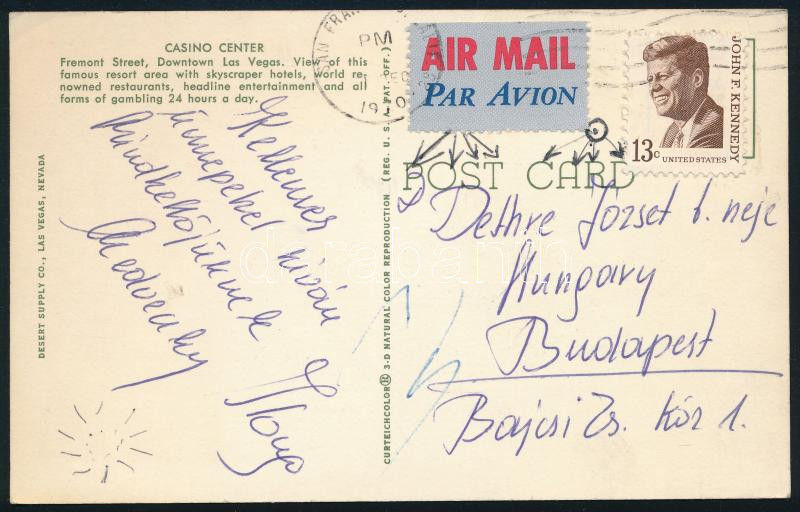 CASINO CENTER
Fremont Street, Downtown Las Vegas. View of this
famous resort area with skyscraper hotels, world re-
nowned restaurants, headline entertainment and all
forms of gambling 24 hours a day.
Kellemes
ünnepeket kíván
Mindkettőjüknek
Medveczky
DESERT SUPPLY CO., LAS VEGAS, NEVADA
CURTEICHCOLOR® 3-D NATURAL COLOR REPRODUCTION (REG. U. S. A. PAT. OFF.)
SAN FRAN
PM
DEC
AIR MAIL
PAR AVION
JOHN F. KENNEDY
13c UNITED STATES
POST CARD
Dethre József b. neje
Hungary
Budapest
Bajcsi Zs. Kör 1.
darabanth